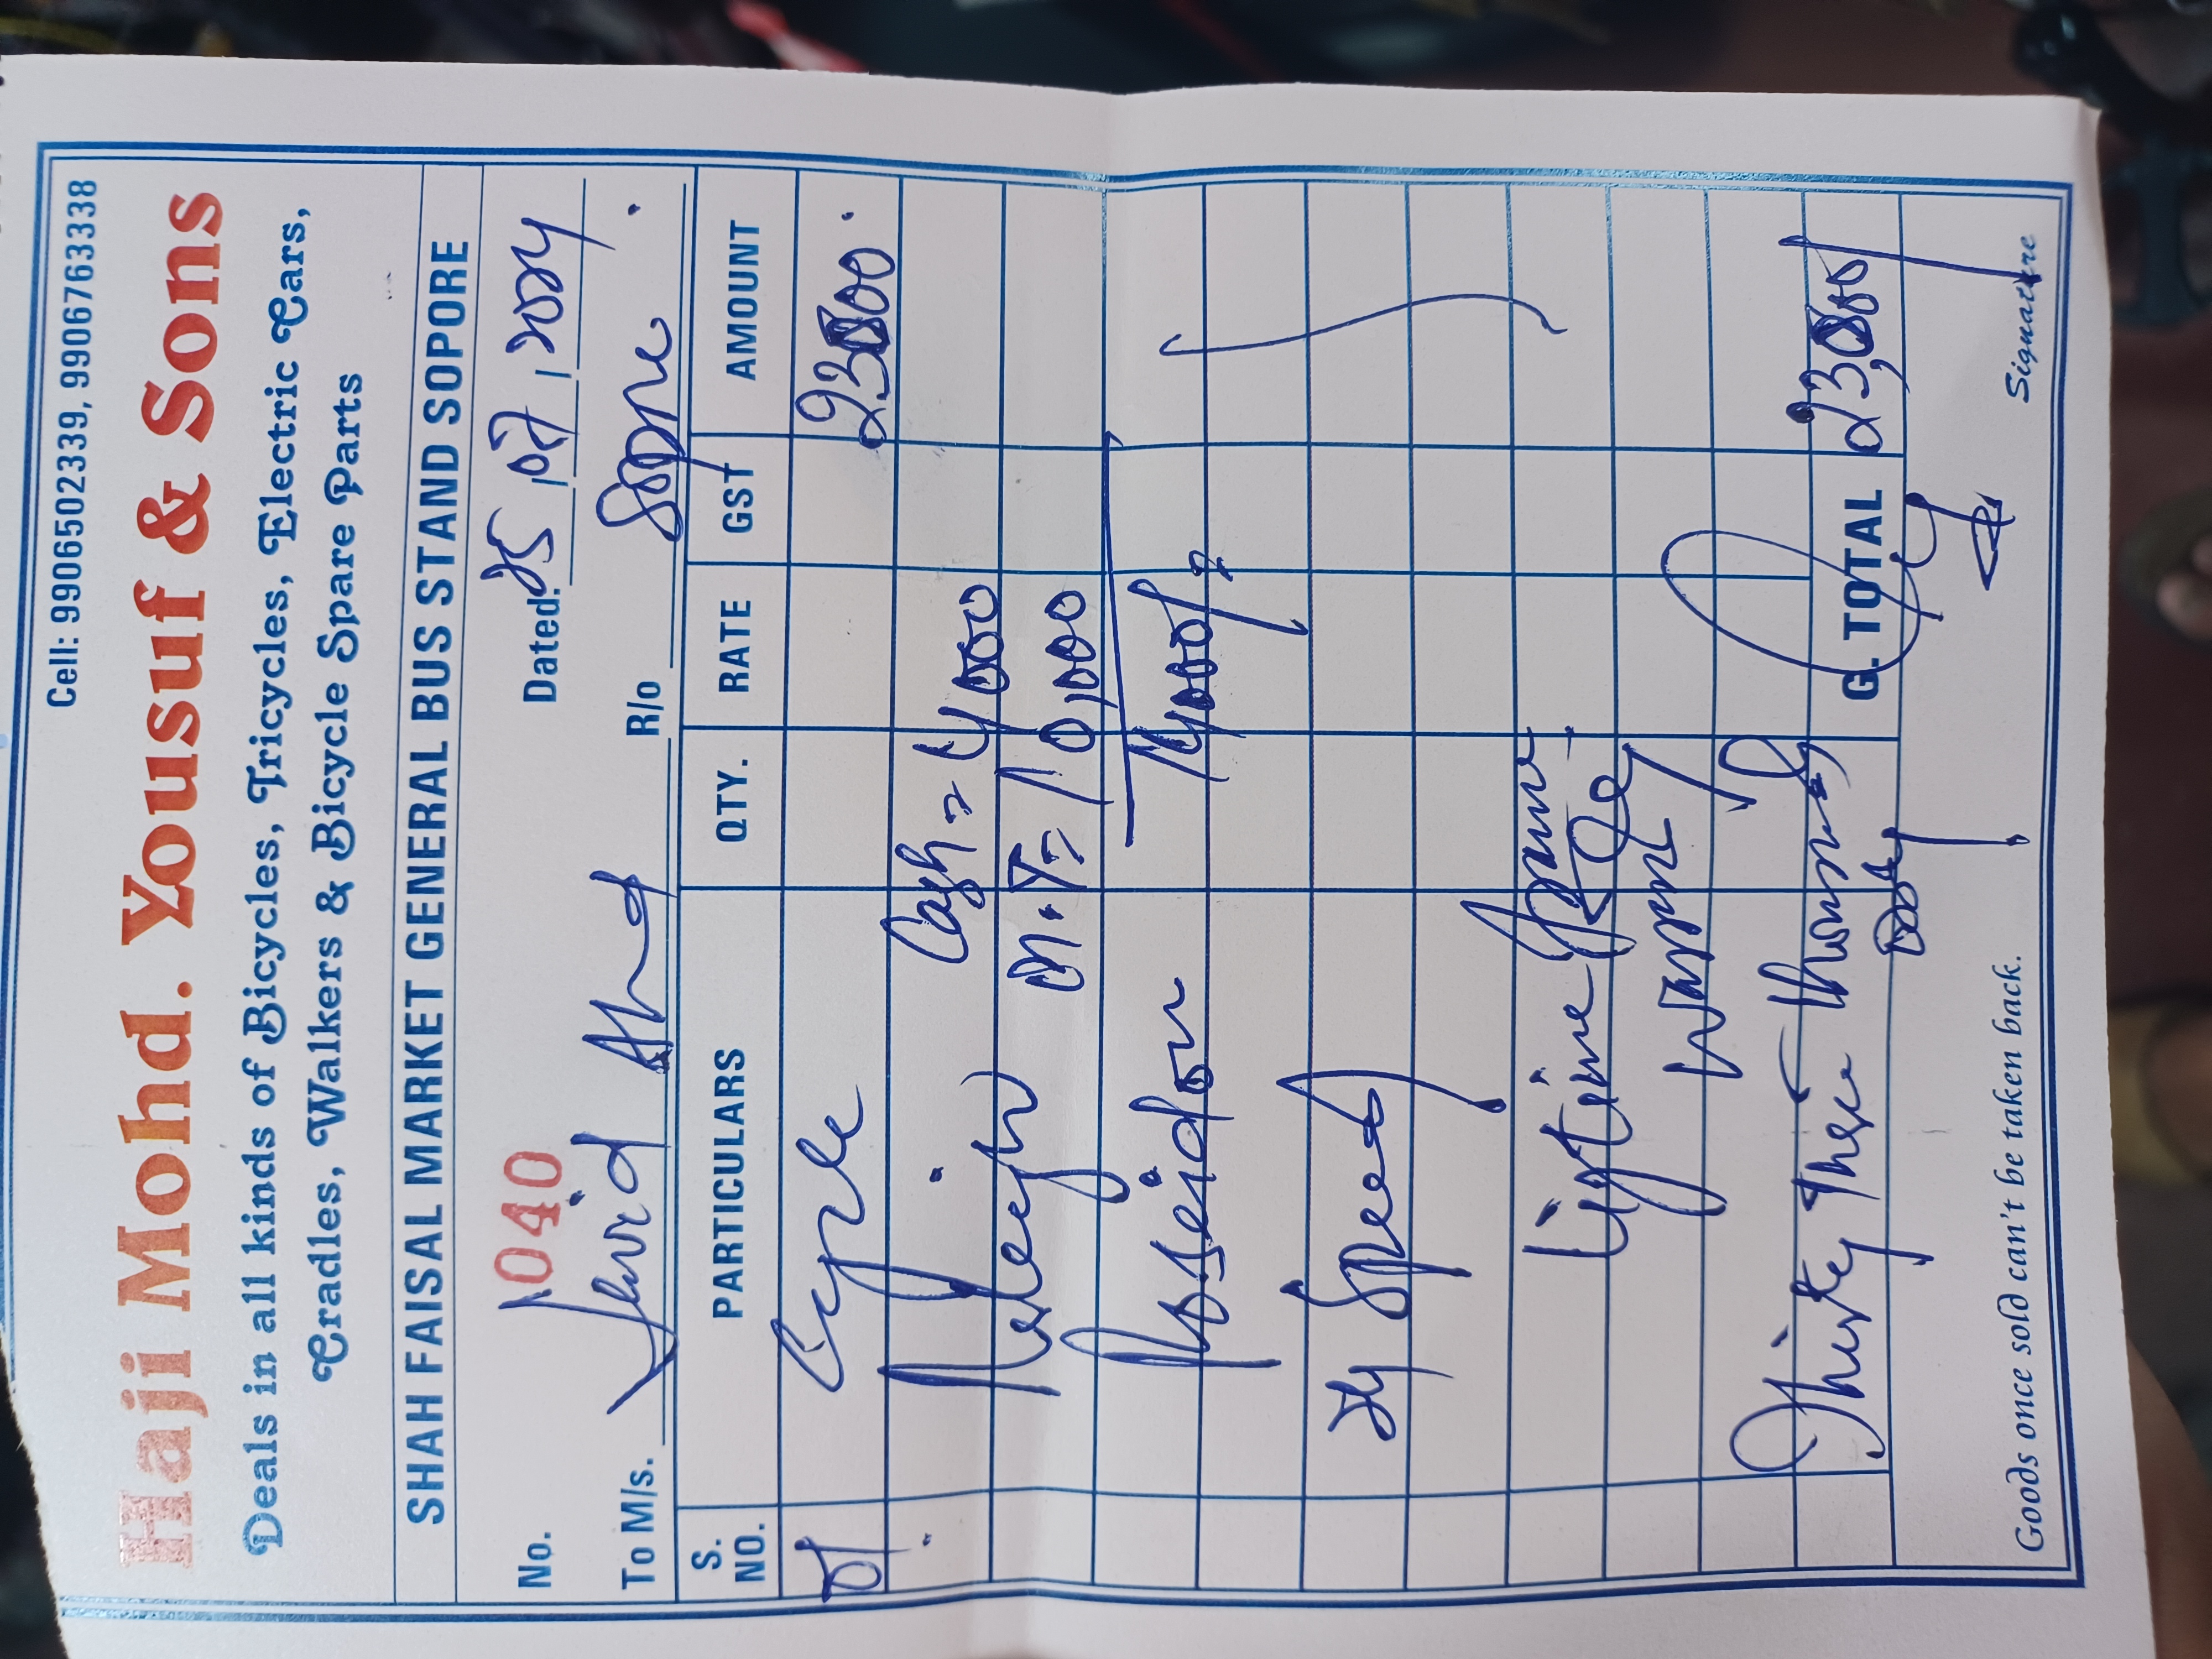 Cell: 9906502339, 9906763338
Haji Mohd. Yousuf & Sons
Deals in all kinds of Bicycles, Tricycles, Electric Cars,
Cradles, Walkers & Bicycle Spare Parts
SHAH FAISAL MARKET GENERAL BUS STAND SOPORE
No. 1040 Dated. 25/07/2024
To M/s. Javid R/o Sopore.
S. NO. PARTICULARS QTY. RATE GST AMOUNT
01 Cycle
Cash = 4000
M.P = 10,000
Posseidon 14000/-
24 Speed
Ligtime Frame
Warrnty
Thirty three thousand
only
G. TOTAL
Goods once sold can't be taken back.
Signature